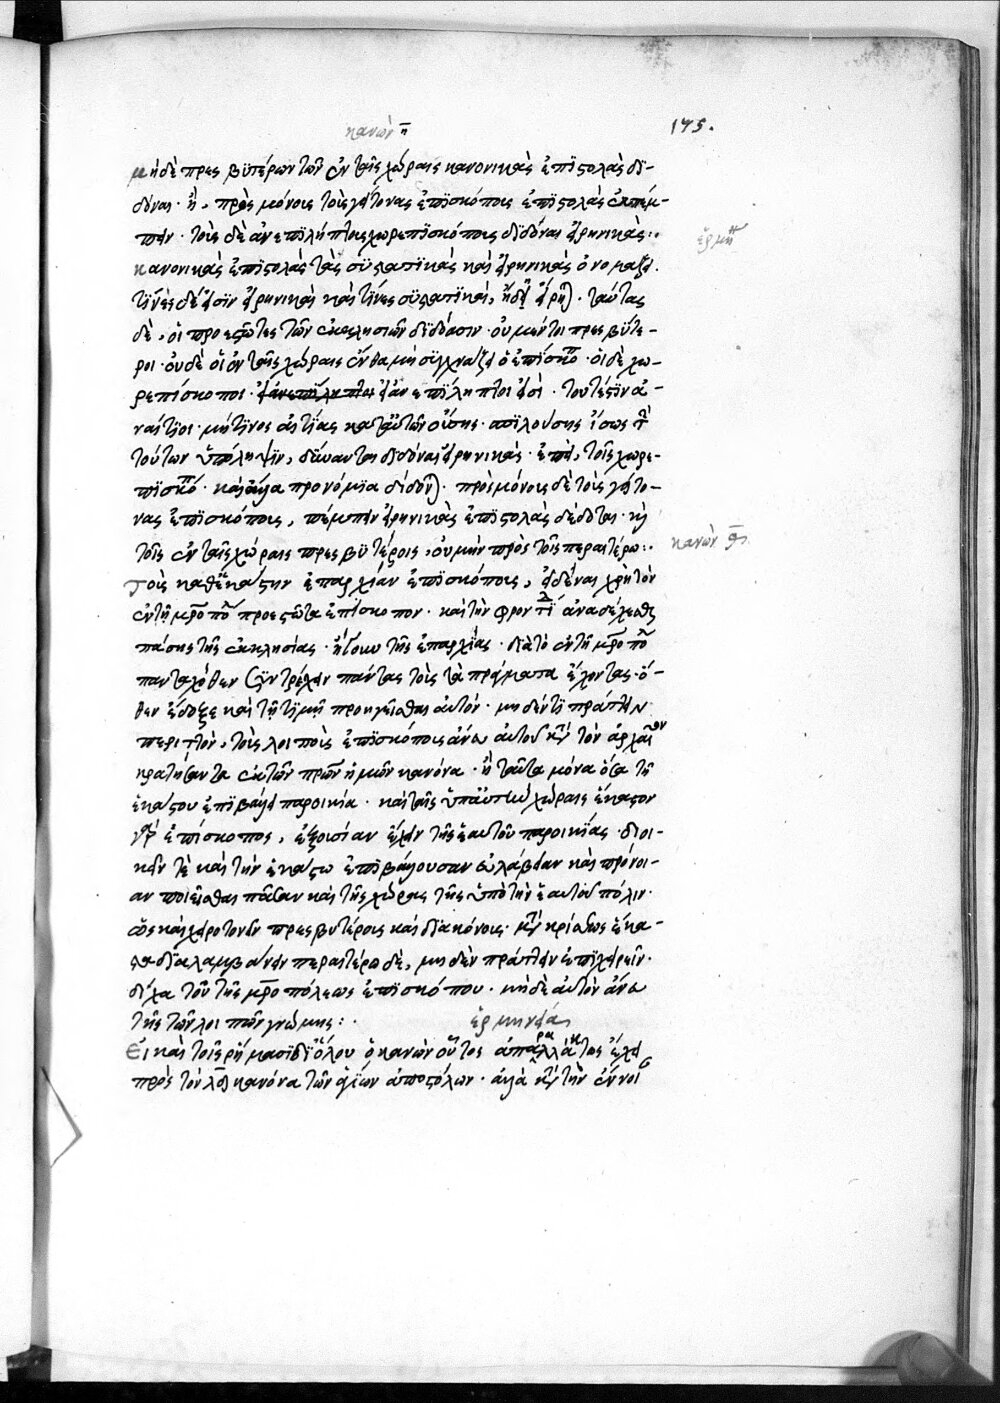 κανὼν η 175.
μηδὲ πρεσβϋτέρων τῶν ἐν ταῖς χώραις κανονικὰς ἐπϊστολὰς δϊ-
δόναι· ἢ, πρὸς μόνοις τοὺς γείτονας ἐπϊσκόποις ἐπϊστολὰς ἐκπέμ-
πειν· τοὺς δὲ ἀνεπϊλήπτους χωρεπϊσκόπους δϊδόναι εἰρηνικάς:·
ἑρμη
κανονικὰς ἐπϊστολὰς τὰς συστατϊκὰς καὶ εἰρηνικὰς ὀνομάζει.
τΐνες δέ εἰσϊν εἰρηνικαὶ καὶ τΐνες συστατϊκαὶ, ἤδη εἴρηται· ταύτας
δὲ, οἱ προεστῶτες τῶν ἐκκλησιῶν δϊδόασιν· οὐ μέντοι πρεσβΰτε-
ροι· οὐδὲ οἱ ἐν ταῖς χώραις ἔνθα μὴ συχνάζει ὁ ἐπίσκο· οἱ δὲ χω-
ρεπίσκοποι· ἐὰν ἀνεπΐληπτοι εἰσὶ· τουτέστϊν ἀ-
ναίτϊοι· μή τϊνος αἰτΐας κατ' αὐτῶν οὔσης· ἀπϊλούσης ἴσως τ
τούτων ὑπόληψϊν, δύνανται διδόναι εἰρηνικάς· ἐπεὶ, τοῖς χωρε-
πϊσκό· καὶ ἄλλα προνόμϊα δίδονται· πρὸς μόνους δὲ τοὺς γείτο-
νας ἐπϊσκόποις, πέμπειν εἰρηνικὰς ἐπϊστολὰς δέδοται· καὶ
τοῖς ἐν ταῖς χώραις πρεσβϋτέροις, οὐ μὴν πρὸς τοῖς περαιτέρω:·
κανὼν θ.
Τοὺς καθ' ἑκάστην ἐπαρχίαν ἐπϊσκόπους, εἰδέναι χρὴ τὸν
ἐν τῇ μρο πο προεστῶτα ἐπίσκοπον· καὶ τὴν φροντΐδ ἀναδέχεσθαι
πάσης τῆς ἐκκλησίας· ἤτοι τῆς ἐπαρχίας· διὰ τὸ ἐν τῇ μρο πο
πανταχόθεν συντρέχειν πάντας τοὺς τὰ πράγματα ἔχοντας· ὅ-
θεν ἔδοξε καὶ τῇ τϊμῇ προηγεῖσθαι αὐτόν· μηδέν τϊ πράττειν
περιττὸν, τοὺς λοιποὺς ἐπϊσκόπους ἄνευ αὐτοῦ κατὰ τὸν ἀρχαῖον
κρατήσαντα ἐκ τῶν πρων ἡμῶν κανόνα· ἢ ταῦτα μόνα ὅσα τῇ
ἑκάστου ἐπϊβάλλει παροικία· καὶ ταῖς ὑπ' αὐτὴν χώραις ἕκαστον
γὰρ ἐπίσκοπος, ἐξουσίαν ἔχειν τῆς ἑαυτοῦ παροικΐας· διοι-
κεῖν τὲ κατὰ τὴν ἑκάστω ἐπιβάλλουσαν εὐλάβειαν καὶ πρόνοι-
αν ποιεῖσθαι πᾶσαν καὶ τῆς χώρας τῆς ὑπὸ τὴν ἑαυτοῦ πόλιν·
ὡς καὶ χειροτονεῖν πρεσβυτέροις καὶ δϊακόνοις· μετὰ κρίσεως ἕκα-
στα δϊαλαμβάνειν περαιτέρω δὲ, μηδὲν πράττειν ἐπϊχειρεῖν·
δίχα τοῦ τῆς μρο πόλεως ἐπϊσκόπου· μηδὲ αὐτὸν ἄνευ
τῆς τῶν λοιπῶν γνώμης:· ἑρμηνεία
Εἰ καὶ τοῖς ῥήμασϊ δϊόλου ὁ κανὼν οὗτος ἀπαράλλακτος ἔχει
πρὸς τὸν λδ κανόνα τῶν ἁγίων ἀποστόλων· ἀλλὰ κατὰ τὴν ἔννοι